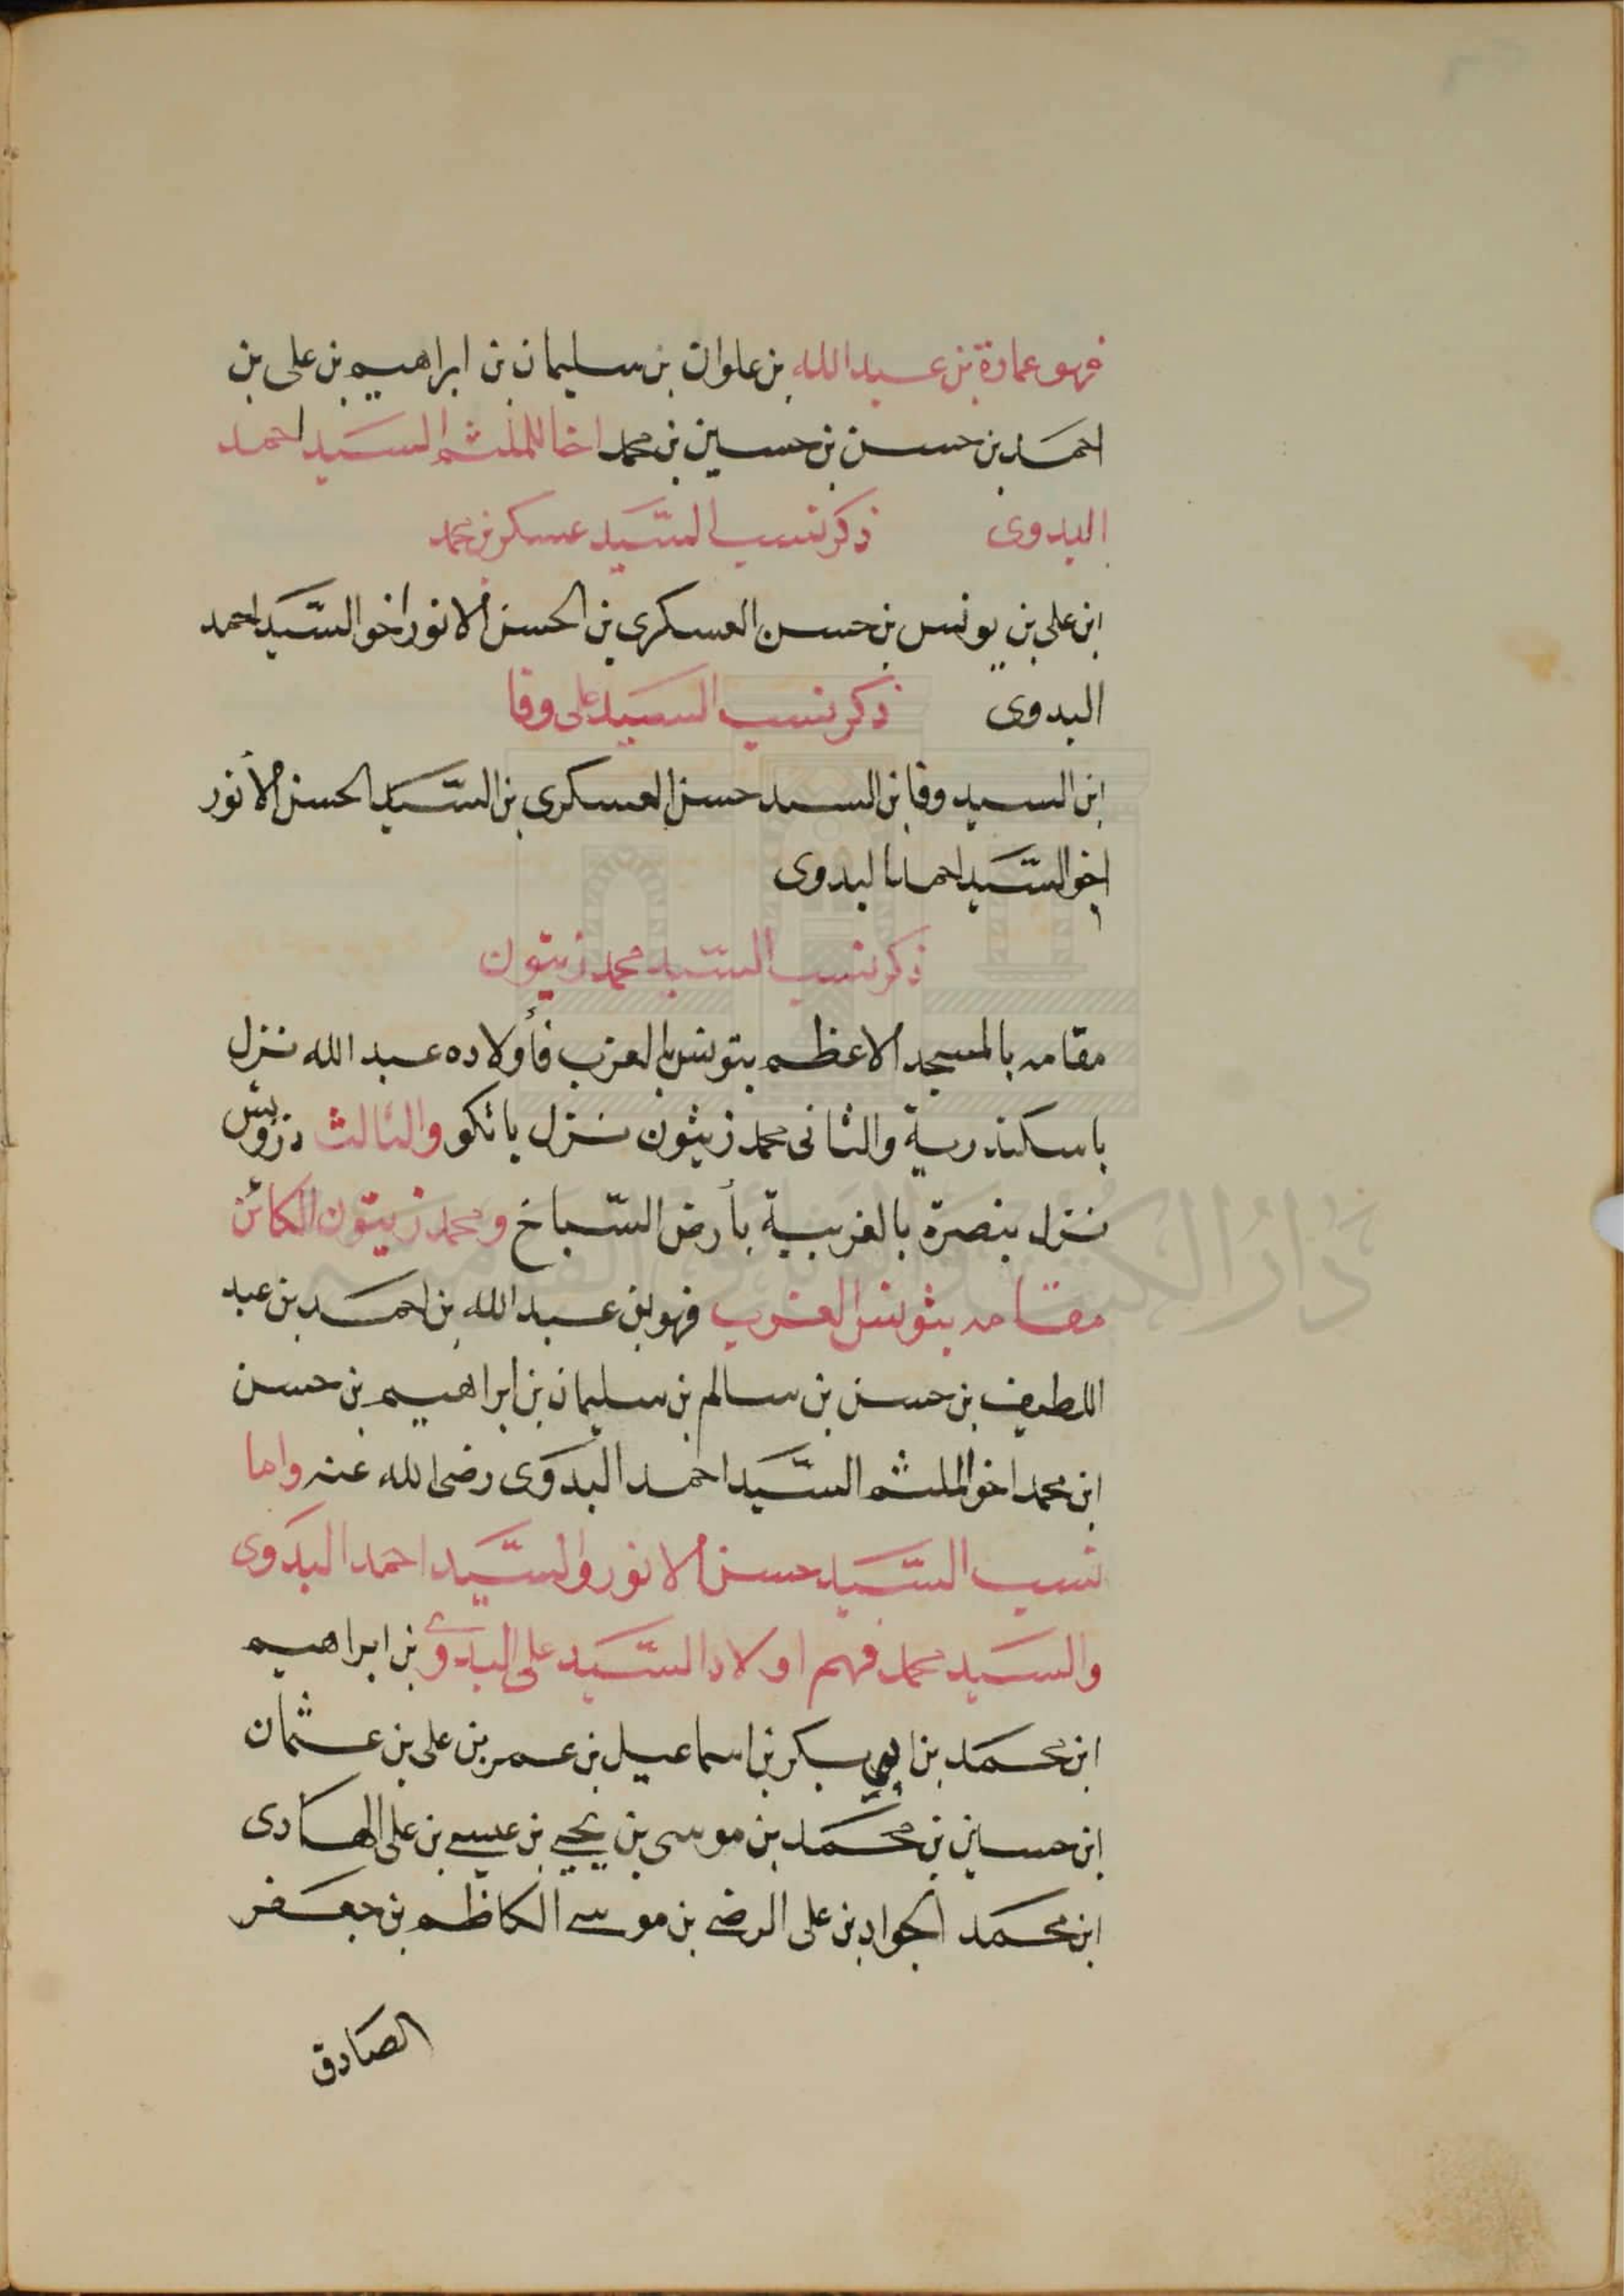 فهو عمارة بن عبد الله بن علوان بن سليمان بن ابراهيم بن على بن
احمد بن حسن بن حسين بن محمد اخا الملثم السيد احمد
البدوى ذكر نسب السيد عسكر بن محمد
ابن على بن يونس بن حسن العسكرى بن الحسن الانور اخو السيد احمد
البدوى ذكر نسب السيد على وفا
ابن السيد وفا بن السيد حسن العسكرى بن السيد الحسن الأنور
اخو السيد احمد البدوى
ذكر نسب السيد محمد زيتون
مقامه بالمسجد الاعظم بتونس الغرب فأولاده عبد الله نزل
باسكندرية والثانى محمد زيثون نزل باتكو والثالث درويش
نزل بنصرة بالغربية بأرض السباخ ومحمد زيتون الكائن
مقامه بثونس الغرب فهو بن عبد الله بن احمد بن عبد
اللطيف بن حسن بن سالم بن سليمان بن ابراهيم بن حسن
ابن محمد اخو الملثم السيد احمد البدوى رضى الله عنه واما
نسب السيد حسن الانور والسيد احمد البدوى
والسيد محمد فهم اولاد السيد على البدوى بن ابراهيم
ابن محمد بن ابى بكر بن اسماعيل بن عمر بن على بن عثمان
ابن حسين بن محمد بن موسى بن يحيى بن عيسى بن على الهادى
ابن محمد الجواد بن على الرضى بن موسى الكاظم بن جعفر
الصادق
دار الكتب والوثائق القومية